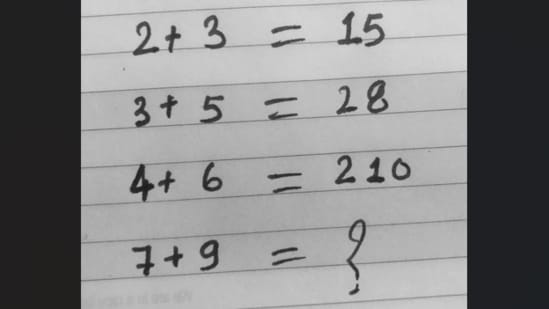 2+ 3 = 15
3+ 5 = 28
4+ 6 = 210
7+9 = ?